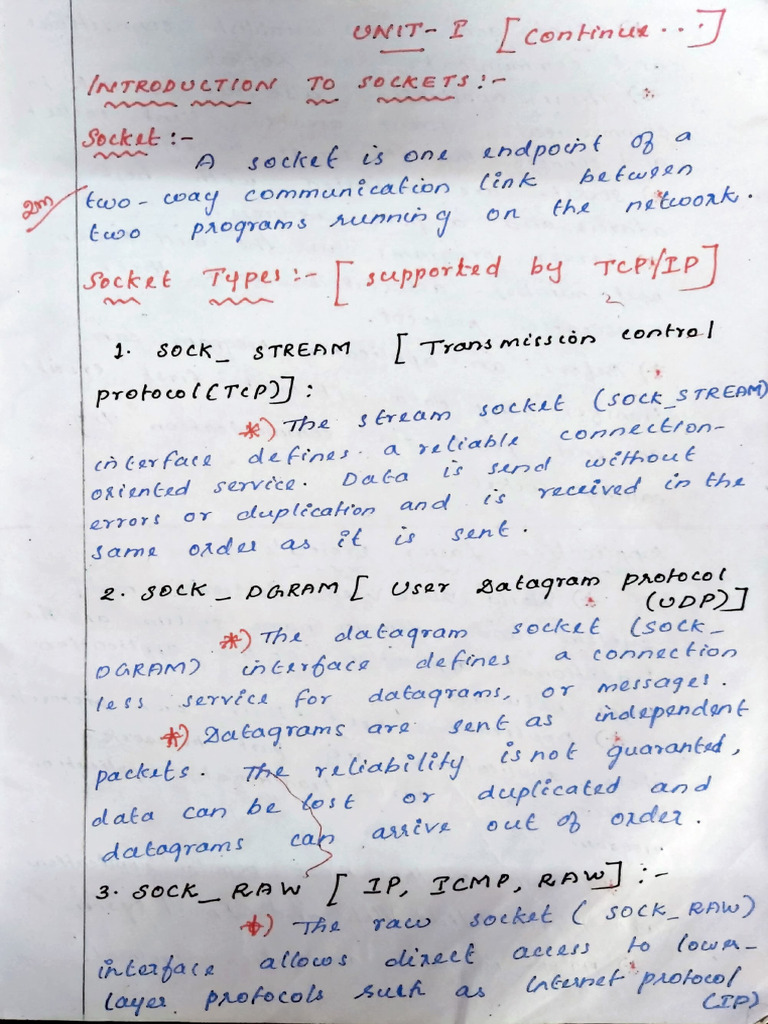 UNIT-I [continue...]
INTRODUCTION TO SOCKETS:-
Socket:-
A socket is one endpoint of a
2m
two-way communication link between
two programs running on the network.
Socket Types:- [supported by TCP/IP]
1. SOCK_ STREAM [Transmission control
protocol(TCP)]:
*) The stream socket (SOCK_STREAM)
interface defines a reliable connection-
oriented service. Data is send without
errors or duplication and is received in the
same order as it is sent.
2. SOCK_ DGRAM [ User Datagram protocol
(UDP)]
*) The datagram socket (SOCK_
DGRAM) interface defines a connection
less service for datagrams, or messages.
*) Datagrams are sent as independent
packets. The reliability is not guaranted,
data can be lost or duplicated and
datagrams can arrive out of order.
3. SOCK_ RAW [ IP, ICMP, RAW] :-
*) The raw socket ( SOCK_RAW)
interface allows direct access to lower-
layer protocols such as Internet protocol
(IP)